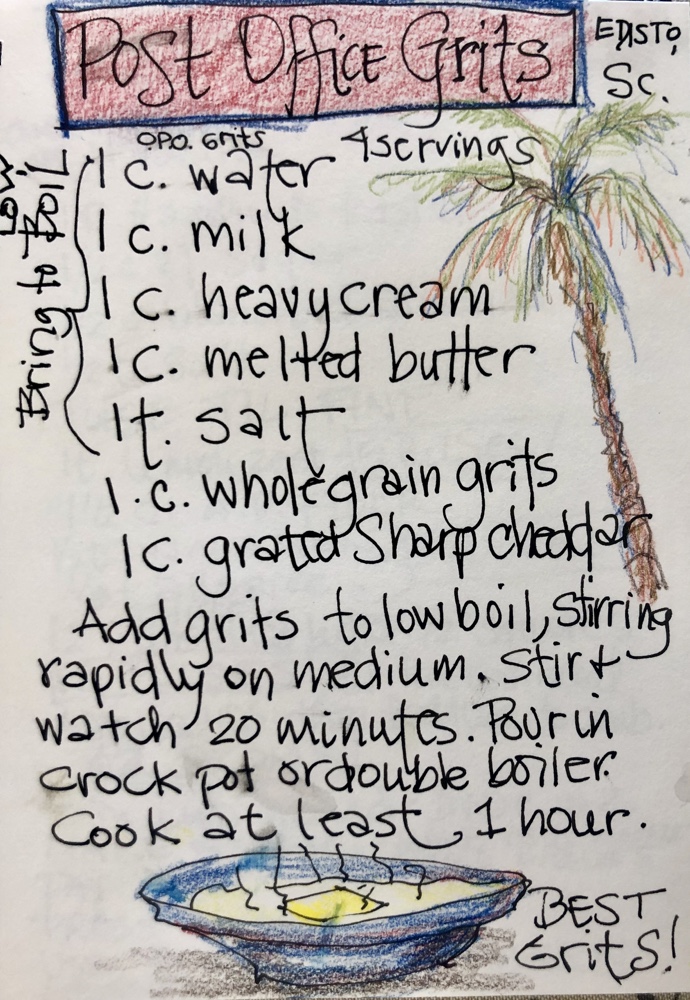 Post Office Grits
EDISTO,
SC.
OPO. Grits
4 servings
Bring to BOIL
LOW
1 c. water
1 c. milk
1 c. heavy cream
1 c. melted butter
1 t. salt
1. c. whole grain grits
1 c. grated Sharp cheddar
Add grits to low boil, Stirring
rapidly on medium. Stir &
watch 20 minutes. Pour in
crock pot or double boiler.
Cook at least 1 hour.
BEST
Grits!